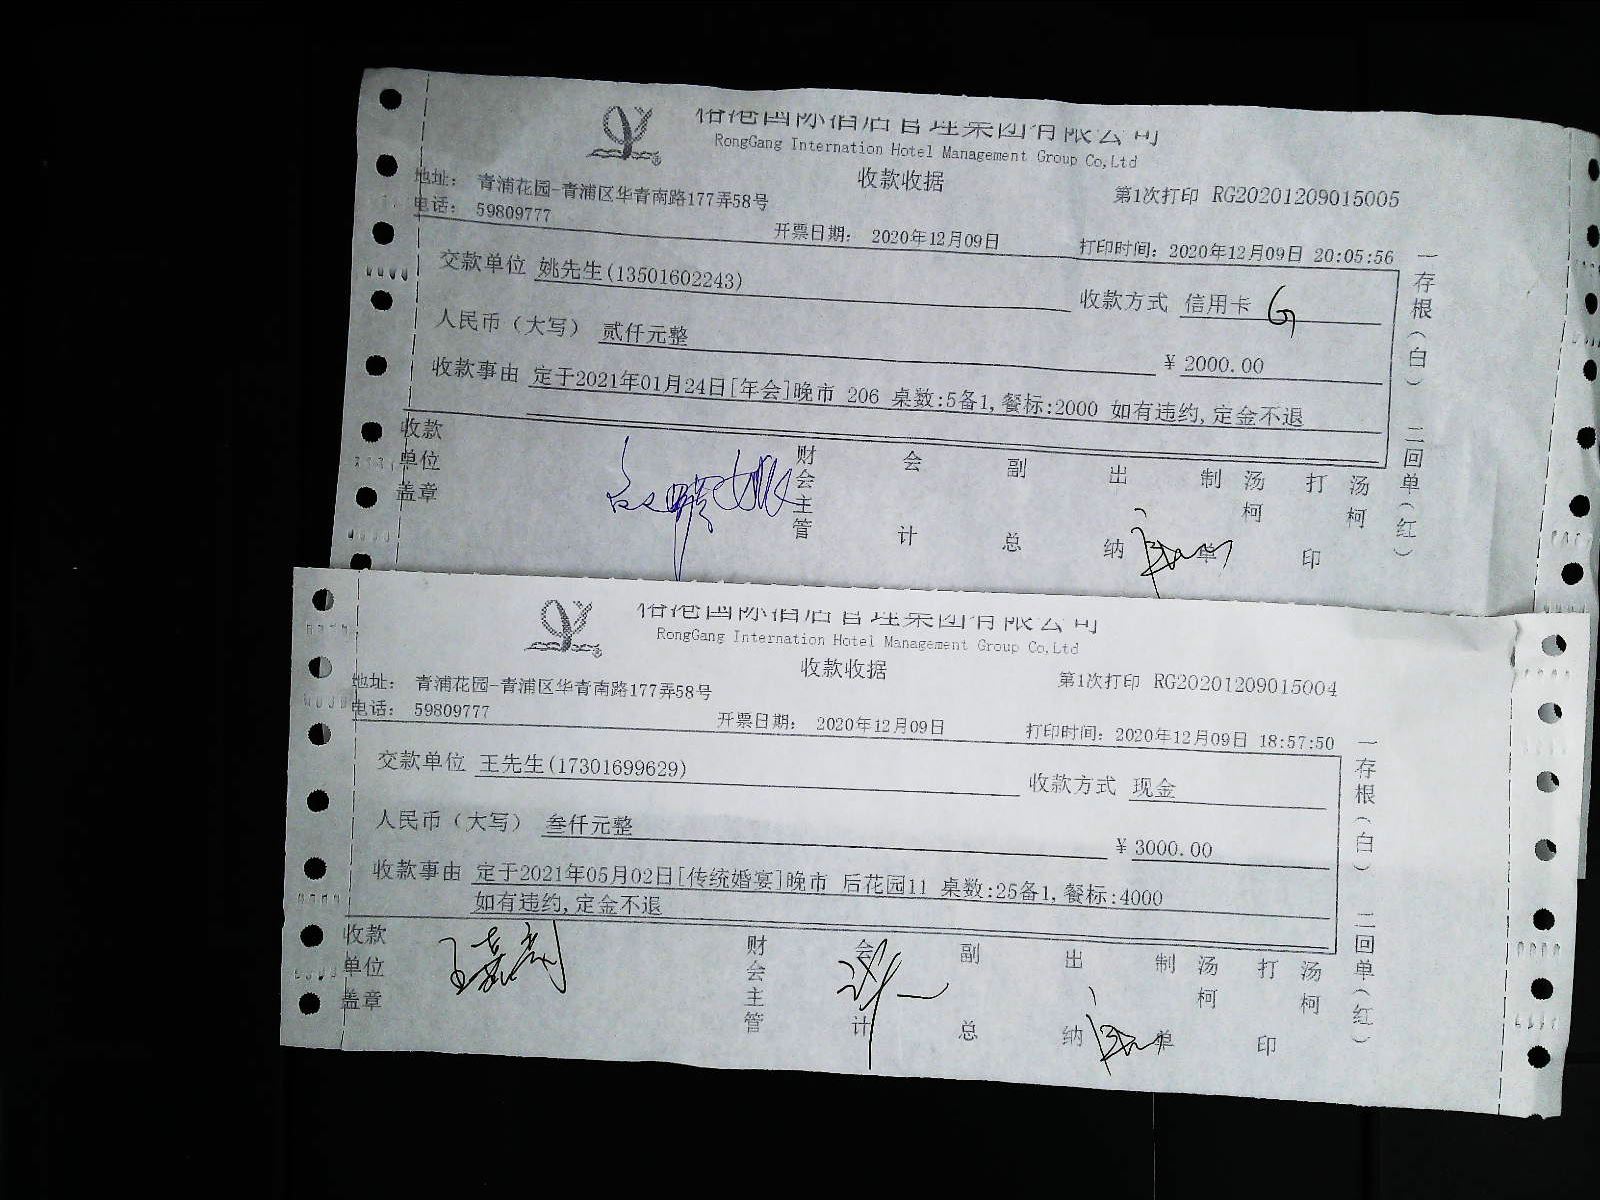 国际酒店管理集团有限公司
RongGang Internation Hotel Management Group Co,Ltd
收款收据
地址： 青浦花园-青浦区华青南路177弄58号
第1次打印 RG20201209015005
电话： 59809777
开票日期： 2020年12月09日
打印时间：2020年12月09日 20:05:56
交款单位 姚先生(13501602243)
收款方式 信用卡
人民币（大写） 贰仟元整
¥ 2000.00
收款事由 定于2021年01月24日[年会]晚市 206 桌数:5备1,餐标:2000 如有违约,定金不退
收款单位盖章
财会主管 会计 副总 出纳 制单 汤柯 打印 汤柯
一存根（白） 二回单（红）
国际酒店管理集团有限公司
RongGang Internation Hotel Management Group Co,Ltd
收款收据
地址： 青浦花园-青浦区华青南路177弄58号
第1次打印 RG20201209015004
电话： 59809777
开票日期： 2020年12月09日
打印时间：2020年12月09日 18:57:50
交款单位 王先生(17301699629)
收款方式 现金
人民币（大写） 叁仟元整
¥ 3000.00
收款事由 定于2021年05月02日[传统婚宴]晚市 后花园11 桌数:25备1,餐标:4000
如有违约,定金不退
收款单位盖章
财会主管 会计 副总 出纳 制单 汤柯 打印 汤柯
一存根（白） 二回单（红）